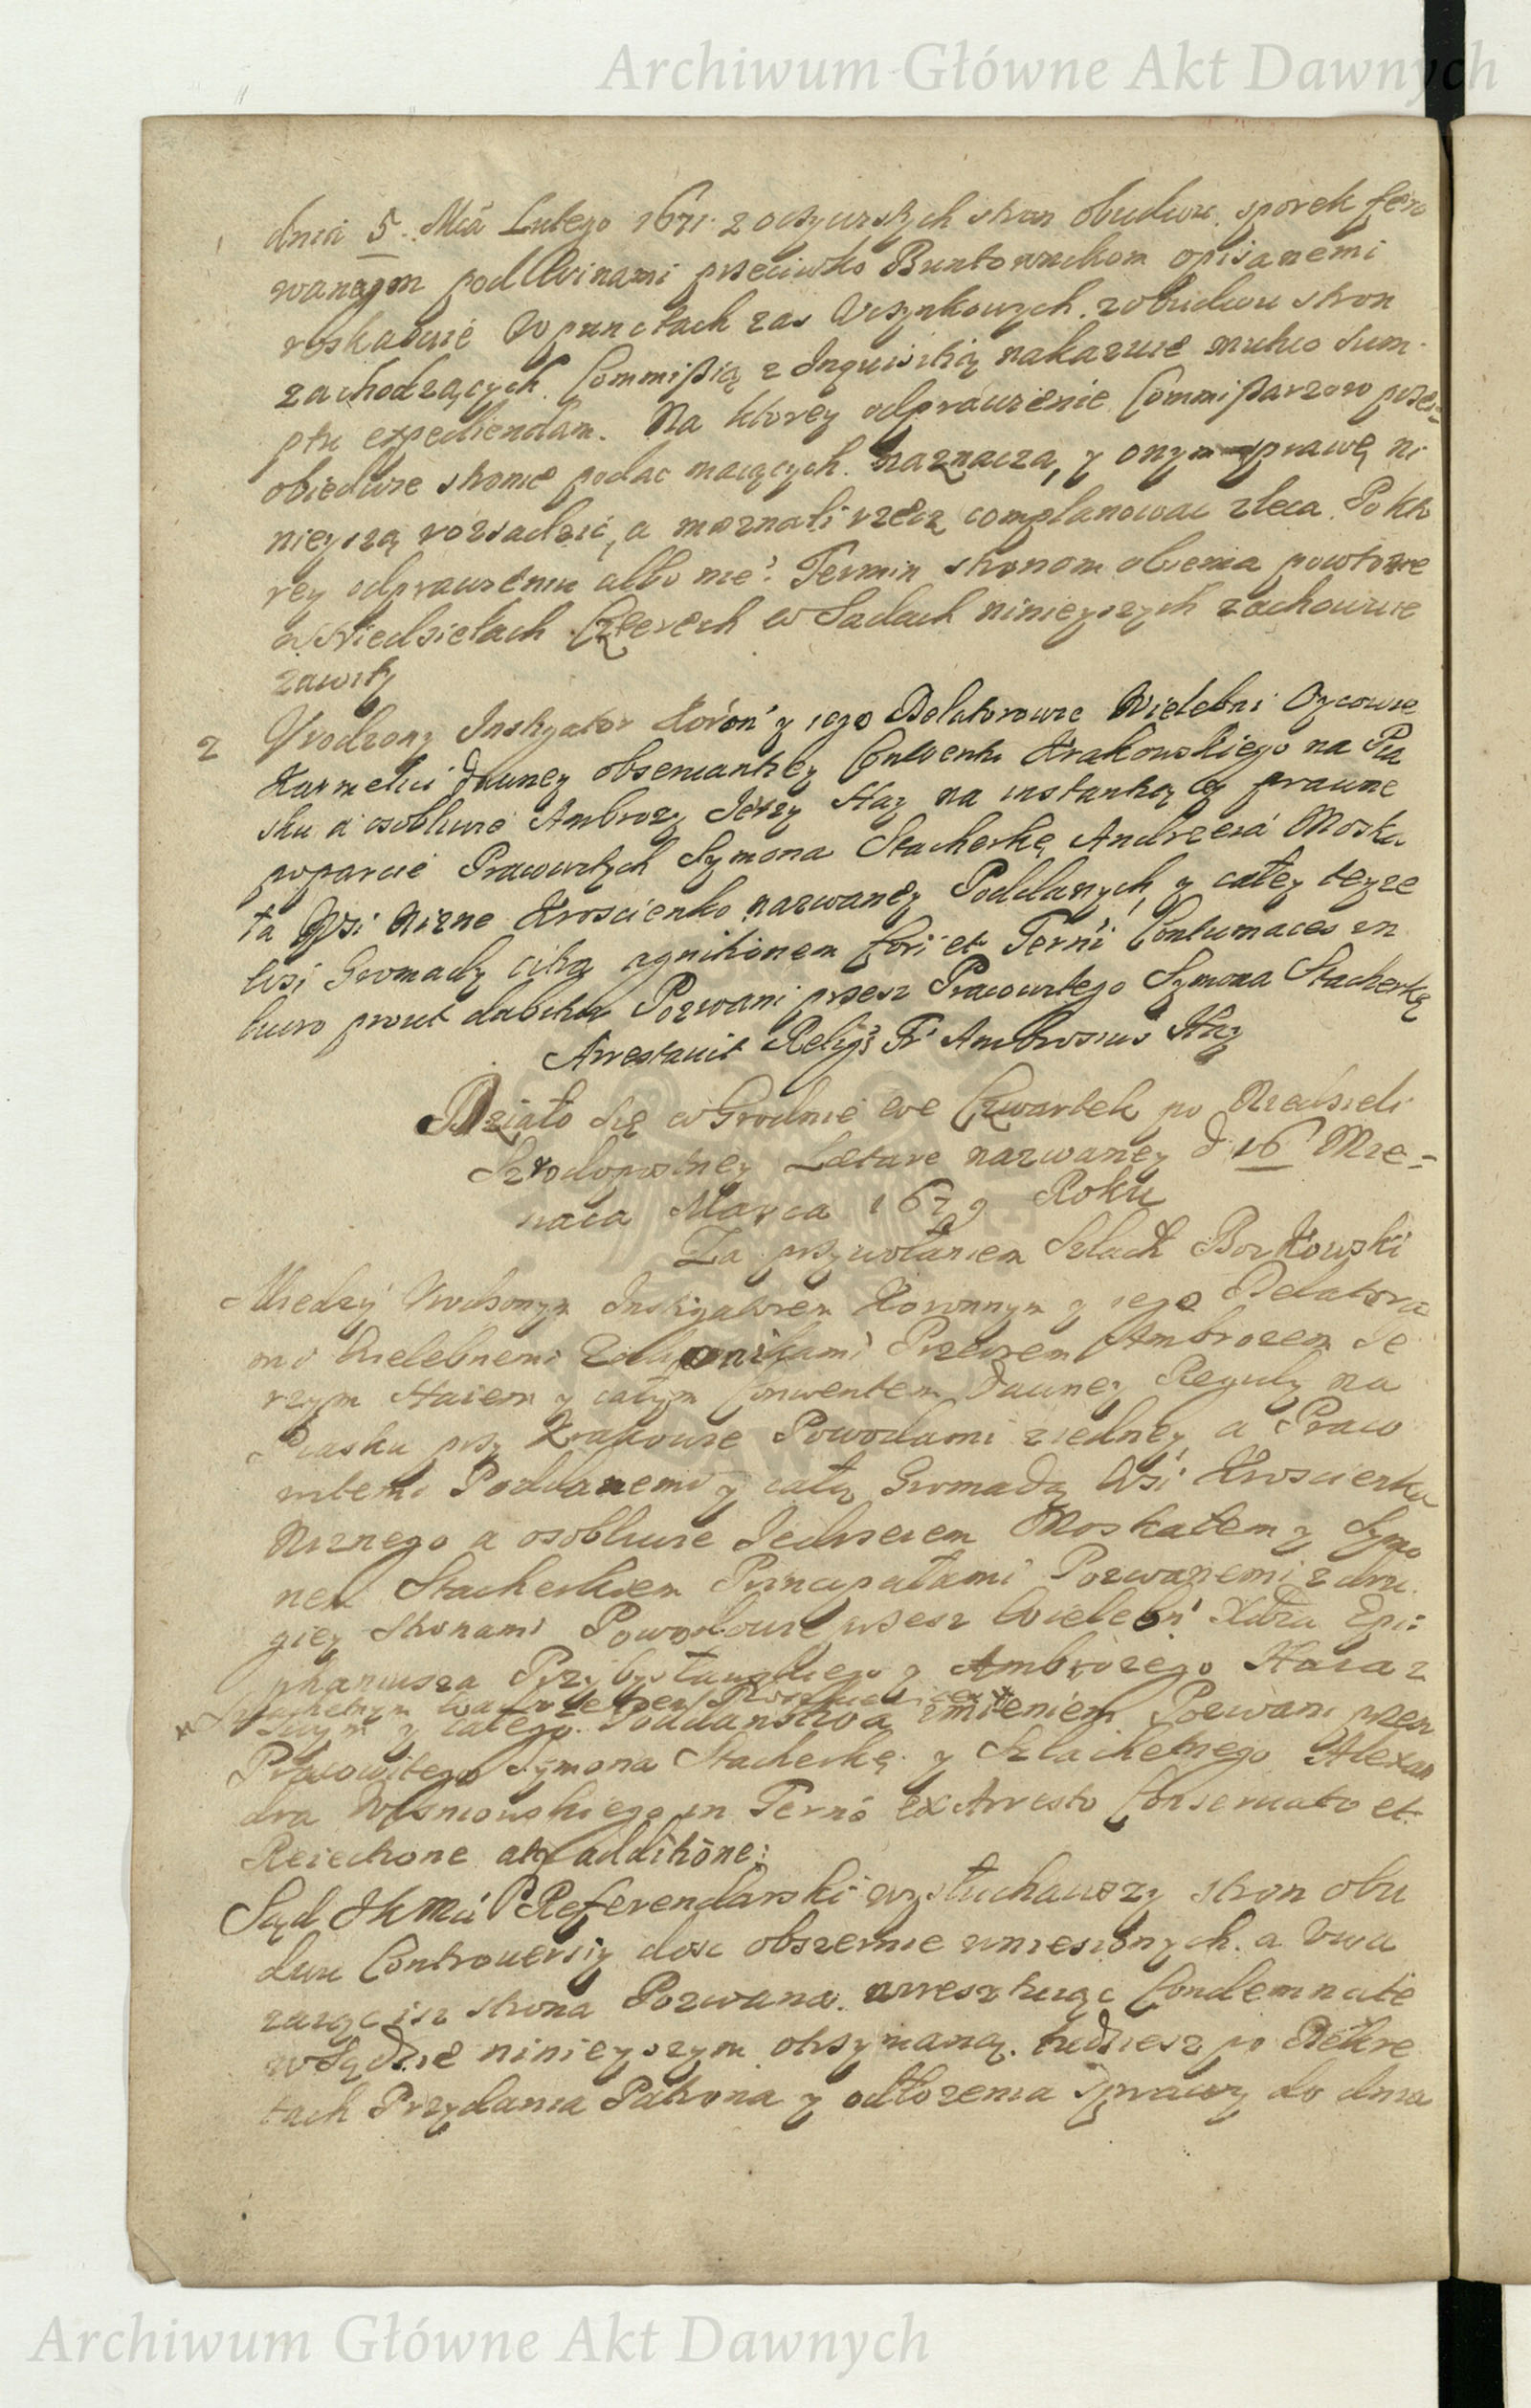 Archiwum Główne Akt Dawnych
dnia 5. Mcá Lutego 1671 z oczywistych stron obudwu sporek fero
wanym pod Winami przeciwko Buntownikom opisanemi
roskazuie W punctach zas Uczynkowych z obudwu stron
zachodzących Commissią z Inquisitią nakazuie mutuo sum
ptu expediendam. Na ktorey odprawienie Commissarzow przez
obiedwie stronie podac maiących naznacza, y onym sprawę ni
nieyszą rozsadzić, a moznali rzecz complanowac zleca. Po kto
rey odprawieniu albo nie? Termin stronom obiema powtornie
w Niedzielach Czterech w Sadach ninieyszych zachowuie
zawity
2 Vrodzony Instygator Koron y iego Delatorowie Wielebni Oycowie
Karmelici dawney obserwantiey Conventu Krakowskiego na Pia
sku a osobliwie Ambrozy Jerzy Hay na instantią y prawne
poparcie Pracowitych Szymona Stacherkę Andrzeia Moska
ła Wsi Nizne Kroscienko nazwaney Poddanych, y całey teyze
Wsi Gromady citą agnitionem fori et Terni Contumaces in
lucro prout dabitur Pozwani przez Pracowitego Szymona Stacherkę
Arrestauit Religs Fr Ambrosius Hay
Działo się w Grodnie we Czwartek po Niedzieli
Szrodopostney Lætare nazwaney d 16 Mie=
siaca Marca 1679 Roku
Za przywołaniem Szlach Borkowski
Miedzy Vrodzonym Instigatorem Koronnym y iego Delatora
mi Wielebnemi Zakonnikami Xiedzem Ambrozem Je
rzym Haiem y całym Conwentem Dawney Reguły na
Piasku przy Krakowie Powodami z iedney a Praco
witemi Poddanemi y całą Gromadą Wsi Kroscienka
Niznego a osobliwie Jedrzeiem Moskałem y Szymo
nem Stacherkiem Principałami Pozwanemi z dru
giey stronami Powodowie przez Wielebn Xdza Epi=
phaniusza y Ambrozego Haia z
Szlachetnym
swym y całego Poddanstwa imieniem Pozwani przez
Pracowitego Szymona Stacherkę y Szlachetnego Alexan
dra Wisniowskiego in Terno ex Arresto Conseruato et
Reiectione atq additione:
Sąd JKMci Referendarski wysłuchawszy stron obu
dwu Controuersiy dosc obszernie wniesionych a Uwa
zaiąc isz strona Pozwana arresztuiąc Condemnate
w Sądzie ninieyszym otrzymaną tudziesz po Dekre
tach Przydania Patrona y odłozenia sprawy do dnia
Archiwum Główne Akt Dawnych